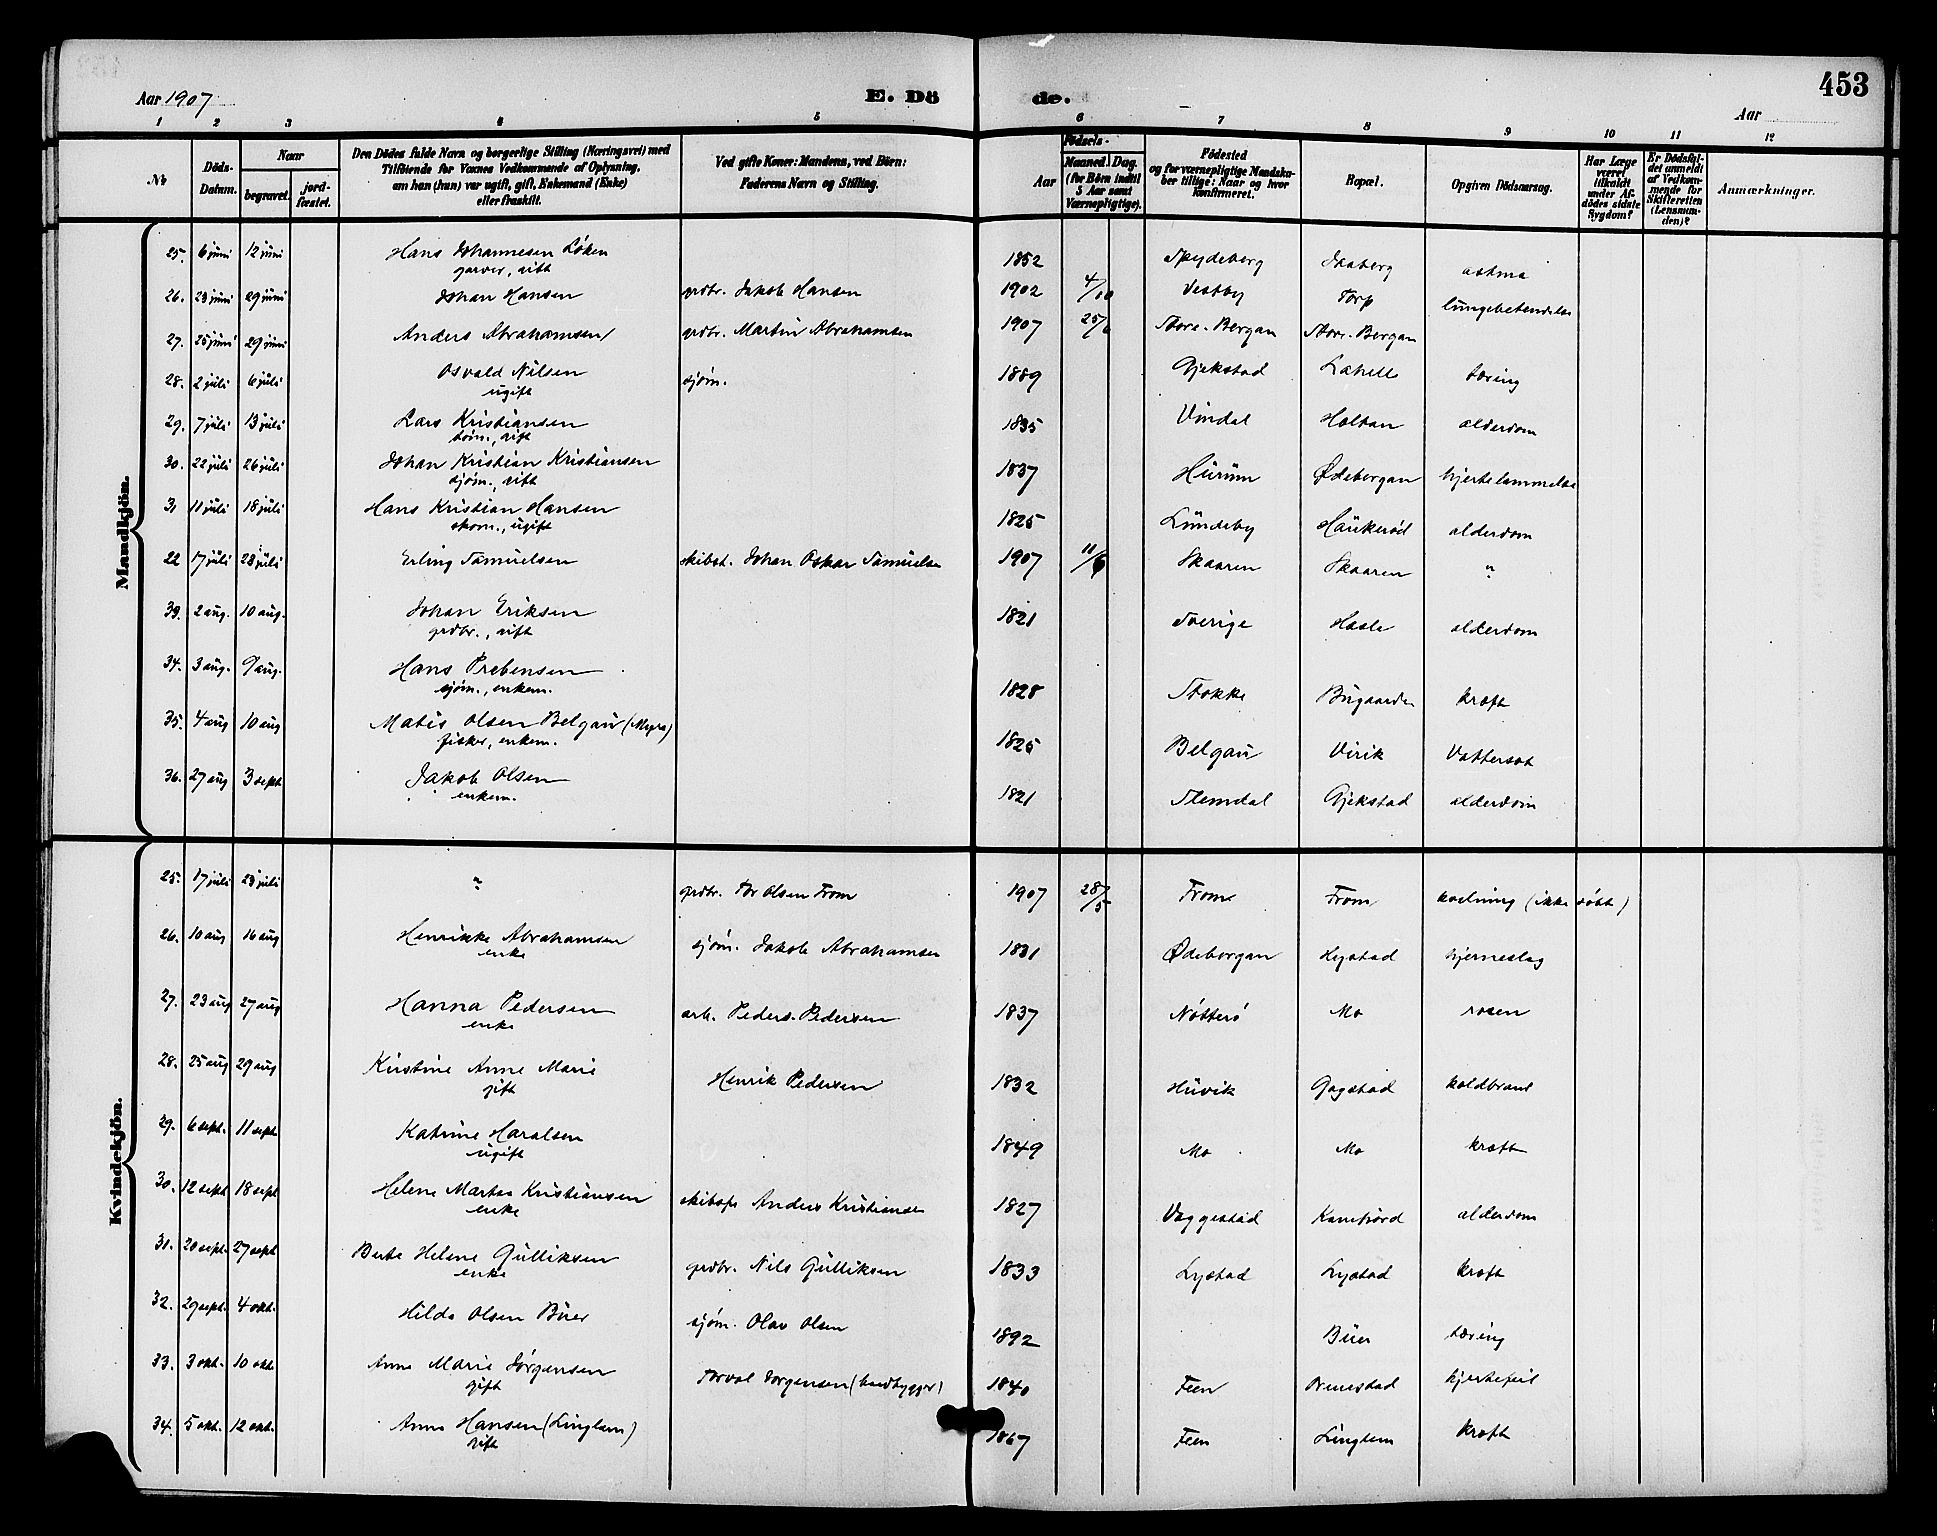 453
Aar 1907
E. Dö de.
Aar
1 2 3 4 5 6 7 8 9 10 11 12
No
Döds-Datum.
Naar
begravet.
jord-fæstet.
Den Dödes fulde Navn og borgerlige Stilling (Næringsvei) med Tilföiende for Voxnes Vedkommende af Oplysning, om han (hun) var ugift, gift, Enkemand (Enke) eller fraskilt.
Ved gifte Koner: Mandens, ved Börn: Faderens Navn og Stilling.
Födsels-
Aar
Maaned. Dag.
(for Börn indtil 5 Aar samt Værnepligtige).
Födested og for værnepligtige Mandskaber tillige: Naar og hvor konfirmeret.
Bopæl.
Opgiven Dödsaarsag.
Har Læge været tilkaldt under Afdödes sidste Sygdom?
Er Dödsfaldet anmeldt af Vedkommende for Skifteretten (Lensmanden)?
Anmærkninger.
Mandkjön.
25. 6 juni 12 juni Hans Johannesen Løken 1852 Spydeberg astma
garver, gift
26. 23 juni 29 juni Johan Hansen grdbr. Jakob Hansen 1902 4/10 Vestby Torp lungebetendelse
27. 25 juni 29 juni Anders Abrahamsen grdbr. Martin Abrahamsen 1907 25/6 Store-Bergan Store-Bergan
28. 2 juli 6 juli Osvald Nilsen sjøm. 1889 Gjekstad tæring
ugift
29. 7 juli 13 juli Lars Kristiansen 1835 Vindal Holtan alderdom
tøm., gift
30. 22 juli 26 juli Johan Kristian Kristiansen 1837 Hurum Ødebergan hjertelammelse
sjøm., gift
31 11 juli 18 juli Hans Kristian Hansen 1825 Lundeby Haukerød alderdom
skom., ugift
22 17 juli 23 juli Erling Samuelsen skibst. Johan Oskar Samuelse 1907 11/6 Skaaren Skaaren "
33. 2 aug. 10 aug. Johan Eriksen 1821 Sverige Hasle alderdom
grdbr., gift
34. 3 aug. 9 aug. Hans Prebensen 1828 Stokke Bugaarden kræft
sjøm., enkem.
35. 4 aug 10 aug Matis Olsen Belgau (Myra) 1825 Belgau Virik Vattersot
fisker, enkem.
36. 27 aug 3 sept Jakob Olsen 1821 Stemdal Gjekstad alderdom
enkem.
Kvindekjön.
25. 17 juli 23 juli " grdbr. Tor Olsen From 1907 28/5 From From kvælning (ikke døbt)
26. 10 aug 16 aug Henrikke Abrahamsen sjøm. Jakob Abrahamsen 1831 Ødebergan Lystad hjerneslag
enke
27. 23 aug 27 aug Hanna Pedersen arb. Peder Pedersen 1837 Nøtterø Mo rosen
enke
28. 25 aug 29 aug Kirstine Anne Marie Henrik Pedersen 1832 Huvik Gogstad koldbrand
gift
29. 6 sept. 11 sept Katrine Haralsen 1849 Mo Mo kræft
ugift
30. 12 sept 18 sept Helene Martea Kristiansen skibsf. Anders Kristiansen 1827 Vaggestad Kamfjord alderdom
enke
31. 20 sept. 27 sept Berte Helene Gulliksen grdbr. Nils Gulliksen 1833 Lystad Lystad kræft
enke
32. 29 sept. 4 okt. Hilda Olsen Buer sjøm. Olav Olsen 1892 Buer tæring
33. 3 okt. 10 okt. Anne Marie Jørgensen Torval Jørgensen (baadbygger) 1840 Feen Ormestad hjertefeil
gift
34. 5 okt. 12 okt. Anna Hansen (Lingelem) 1867 Feen Lingelem kræft
gift